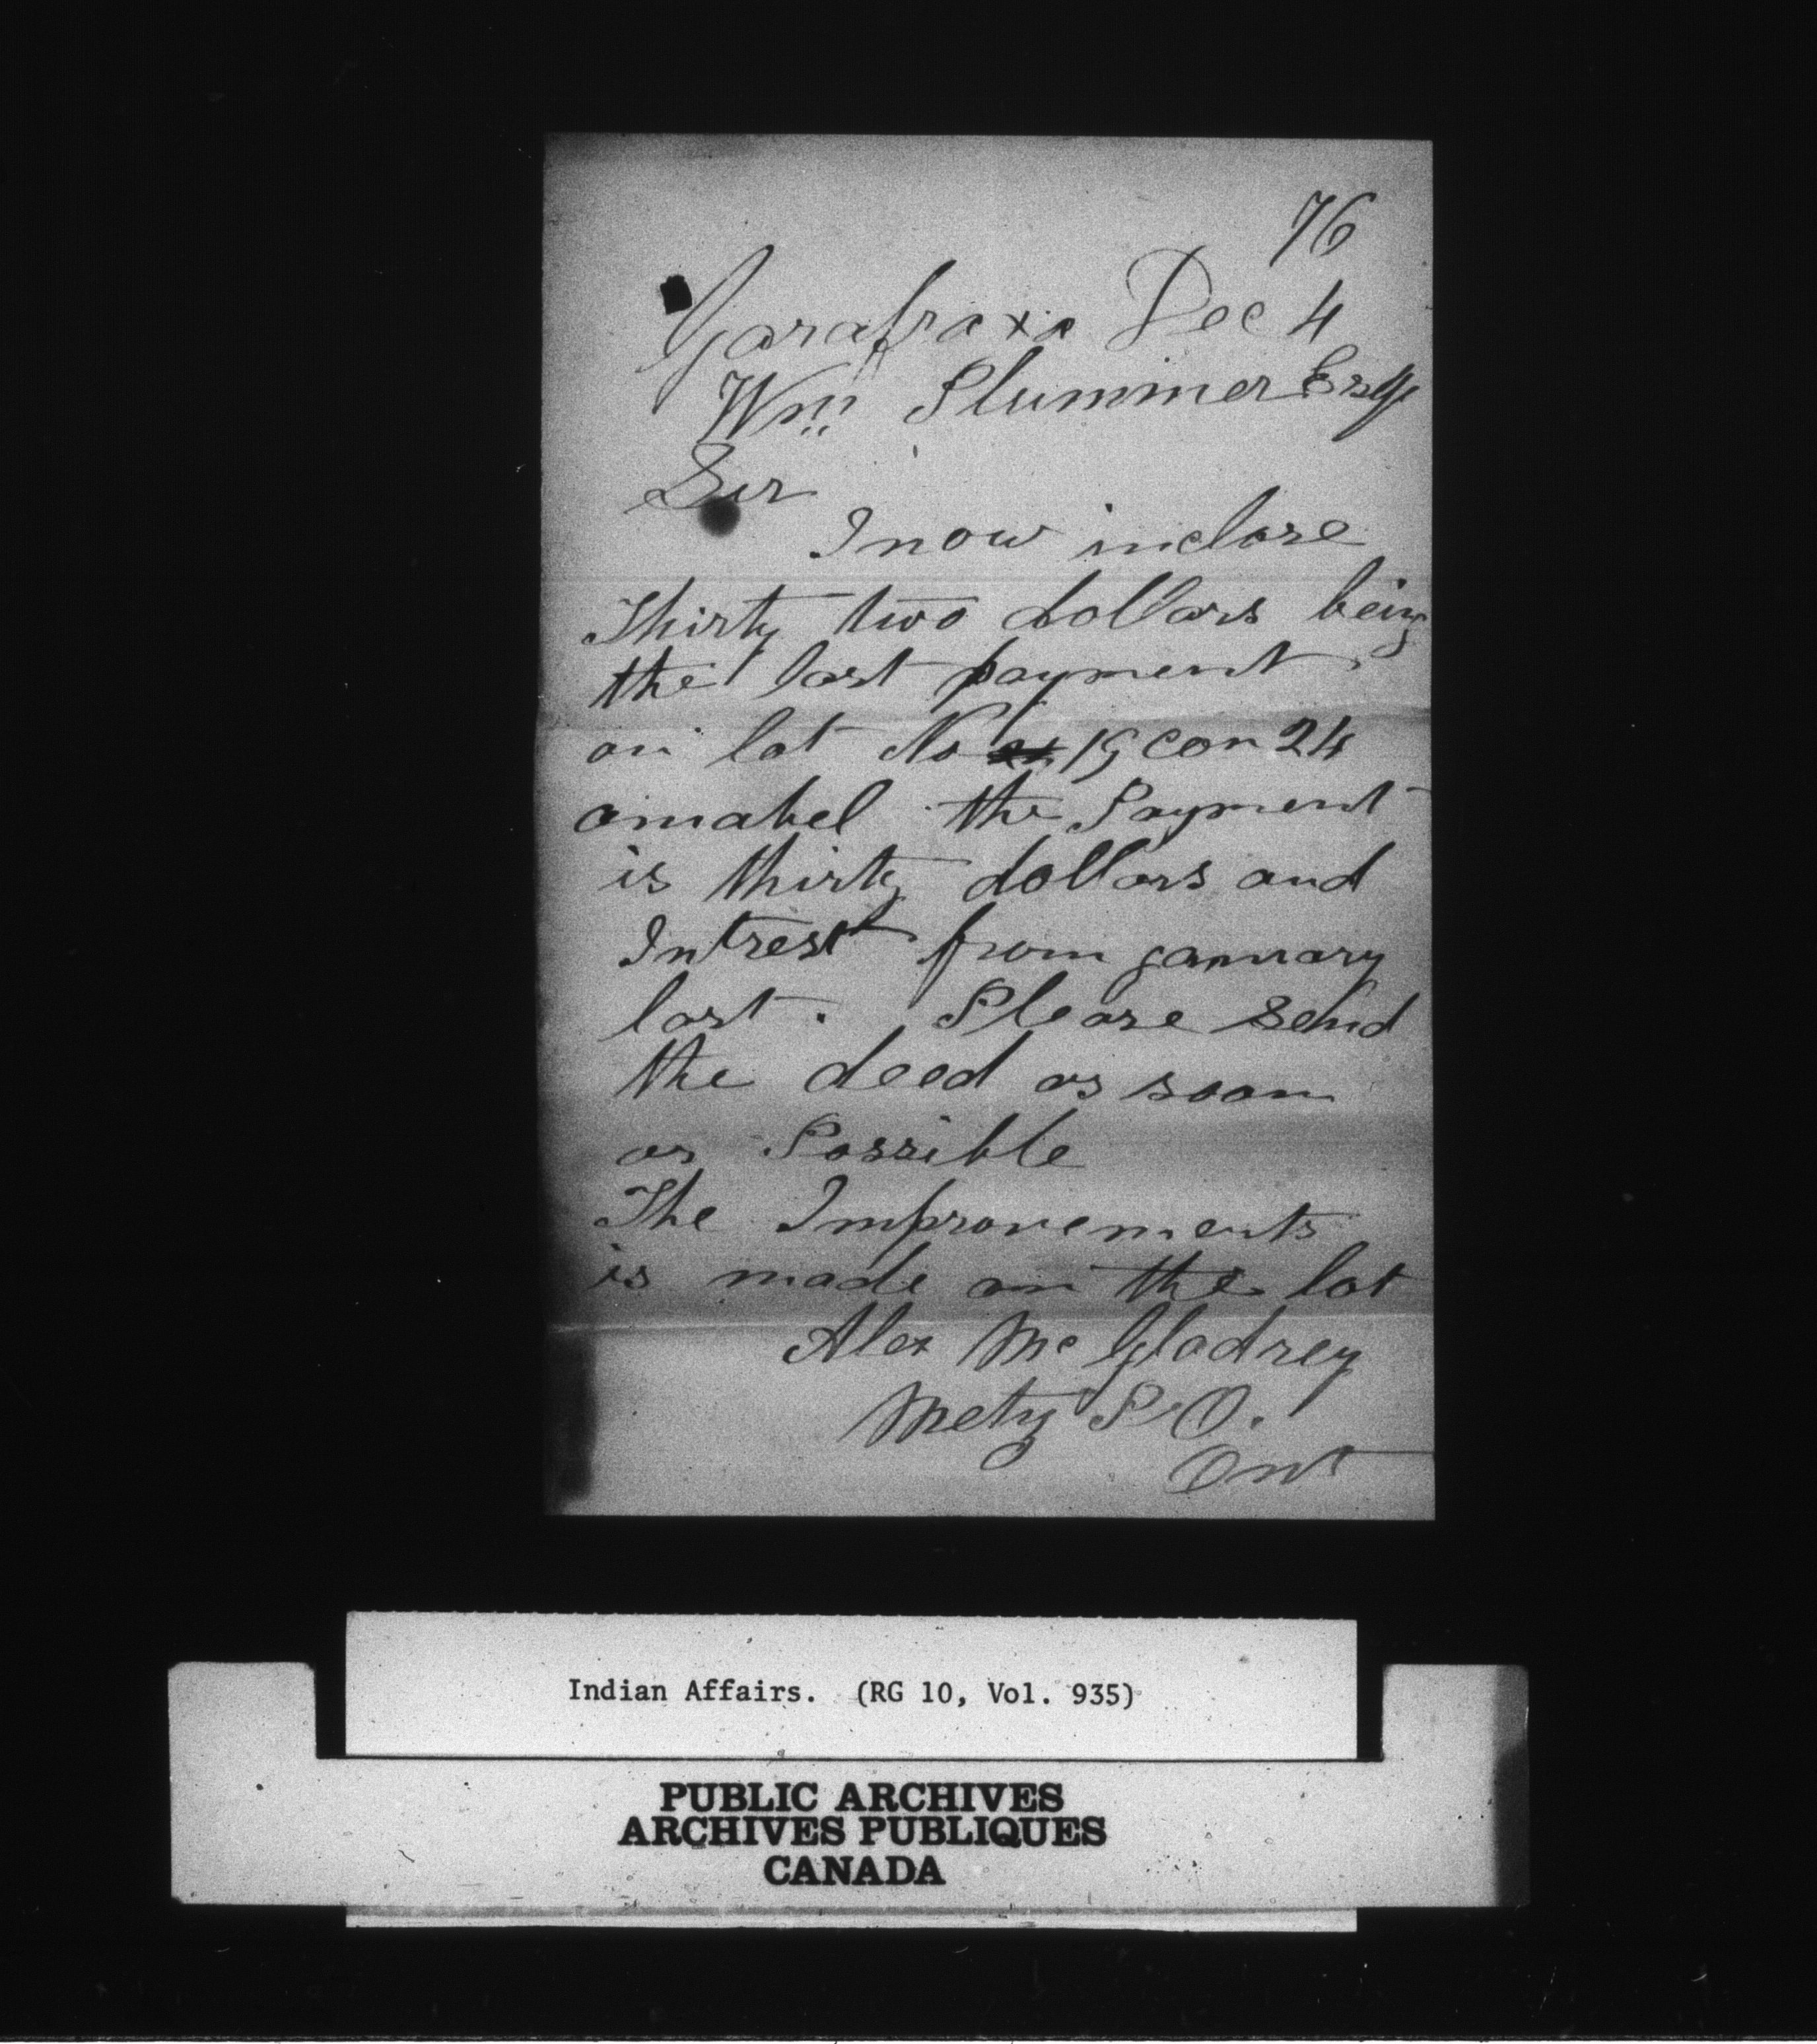 76
Garafraxa Dec 4
Wm Plummer Esqr
Sir
I now inclose
Thirty two dollars being
the last payment
on lot No 19 con 24
amabel the Payment
is thirty dollars and
Intrest from january
last. Please send
the deed as soon
as Possible
The Improvements
is made on the lot
Alex McGladrey
Metz P.O.
Ont
Indian Affairs. (RG 10, Vol. 935)
PUBLIC ARCHIVES
ARCHIVES PUBLIQUES
CANADA